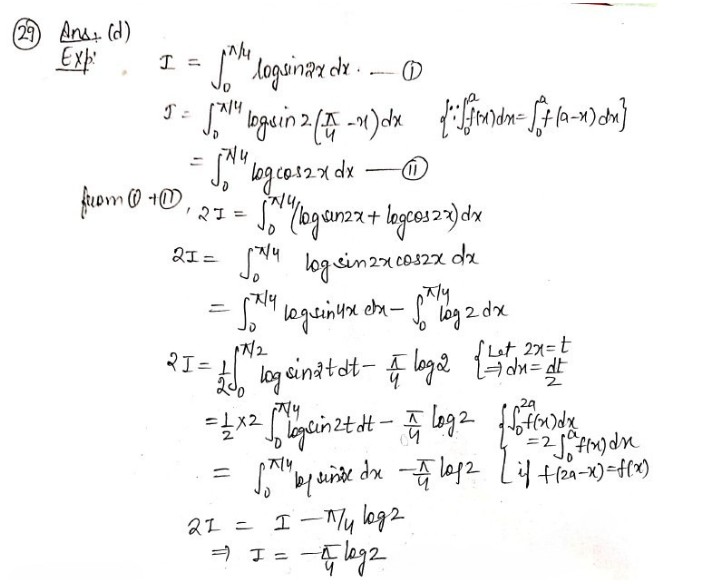 (29) Ans: (d)
Exp: I = ∫₀^{π/4} log sin2x dx. — (I)
I = ∫₀^{π/4} log sin 2(π/4 - x) dx {∵ ∫₀^a f(x)dx = ∫₀^a f(a-x) dx}
= ∫₀^{π/4} log cos2x dx — (II)
from (I) + (II), 2I = ∫₀^{π/4} (log sin2x + log cos2x) dx
2I = ∫₀^{π/4} log sin2x cos2x dx
= ∫₀^{π/4} log sin4x dx - ∫₀^{π/4} log 2 dx
2I = 1/2 ∫₀^{π/2} log sin2t dt - π/4 log2 {Let 2x = t ⇒ dx = dt/2
= 1/2 × 2 ∫₀^{π/4} log sin2t dt - π/4 log2 {∫₀^{2a} f(x)dx = 2∫₀^a f(x) dx
= ∫₀^{π/4} log sin2x dx - π/4 log2 if f(2a-x) = f(x)
2I = I - π/4 log2
⇒ I = -π/4 log2